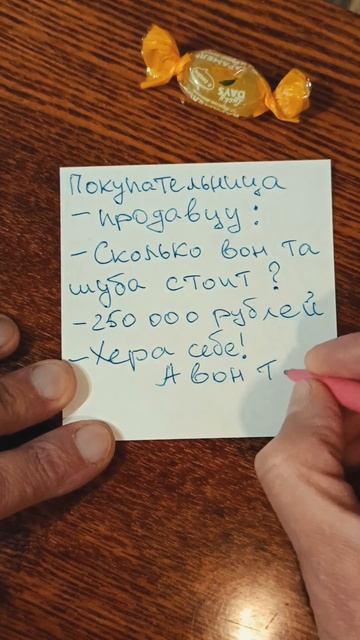 КАРАМЕЛЬ
DAYS
Покупательница
- продавцу:
- Сколько вон та
шуба стоит?
- 250 000 рублей
- Хера себе!
А вон т